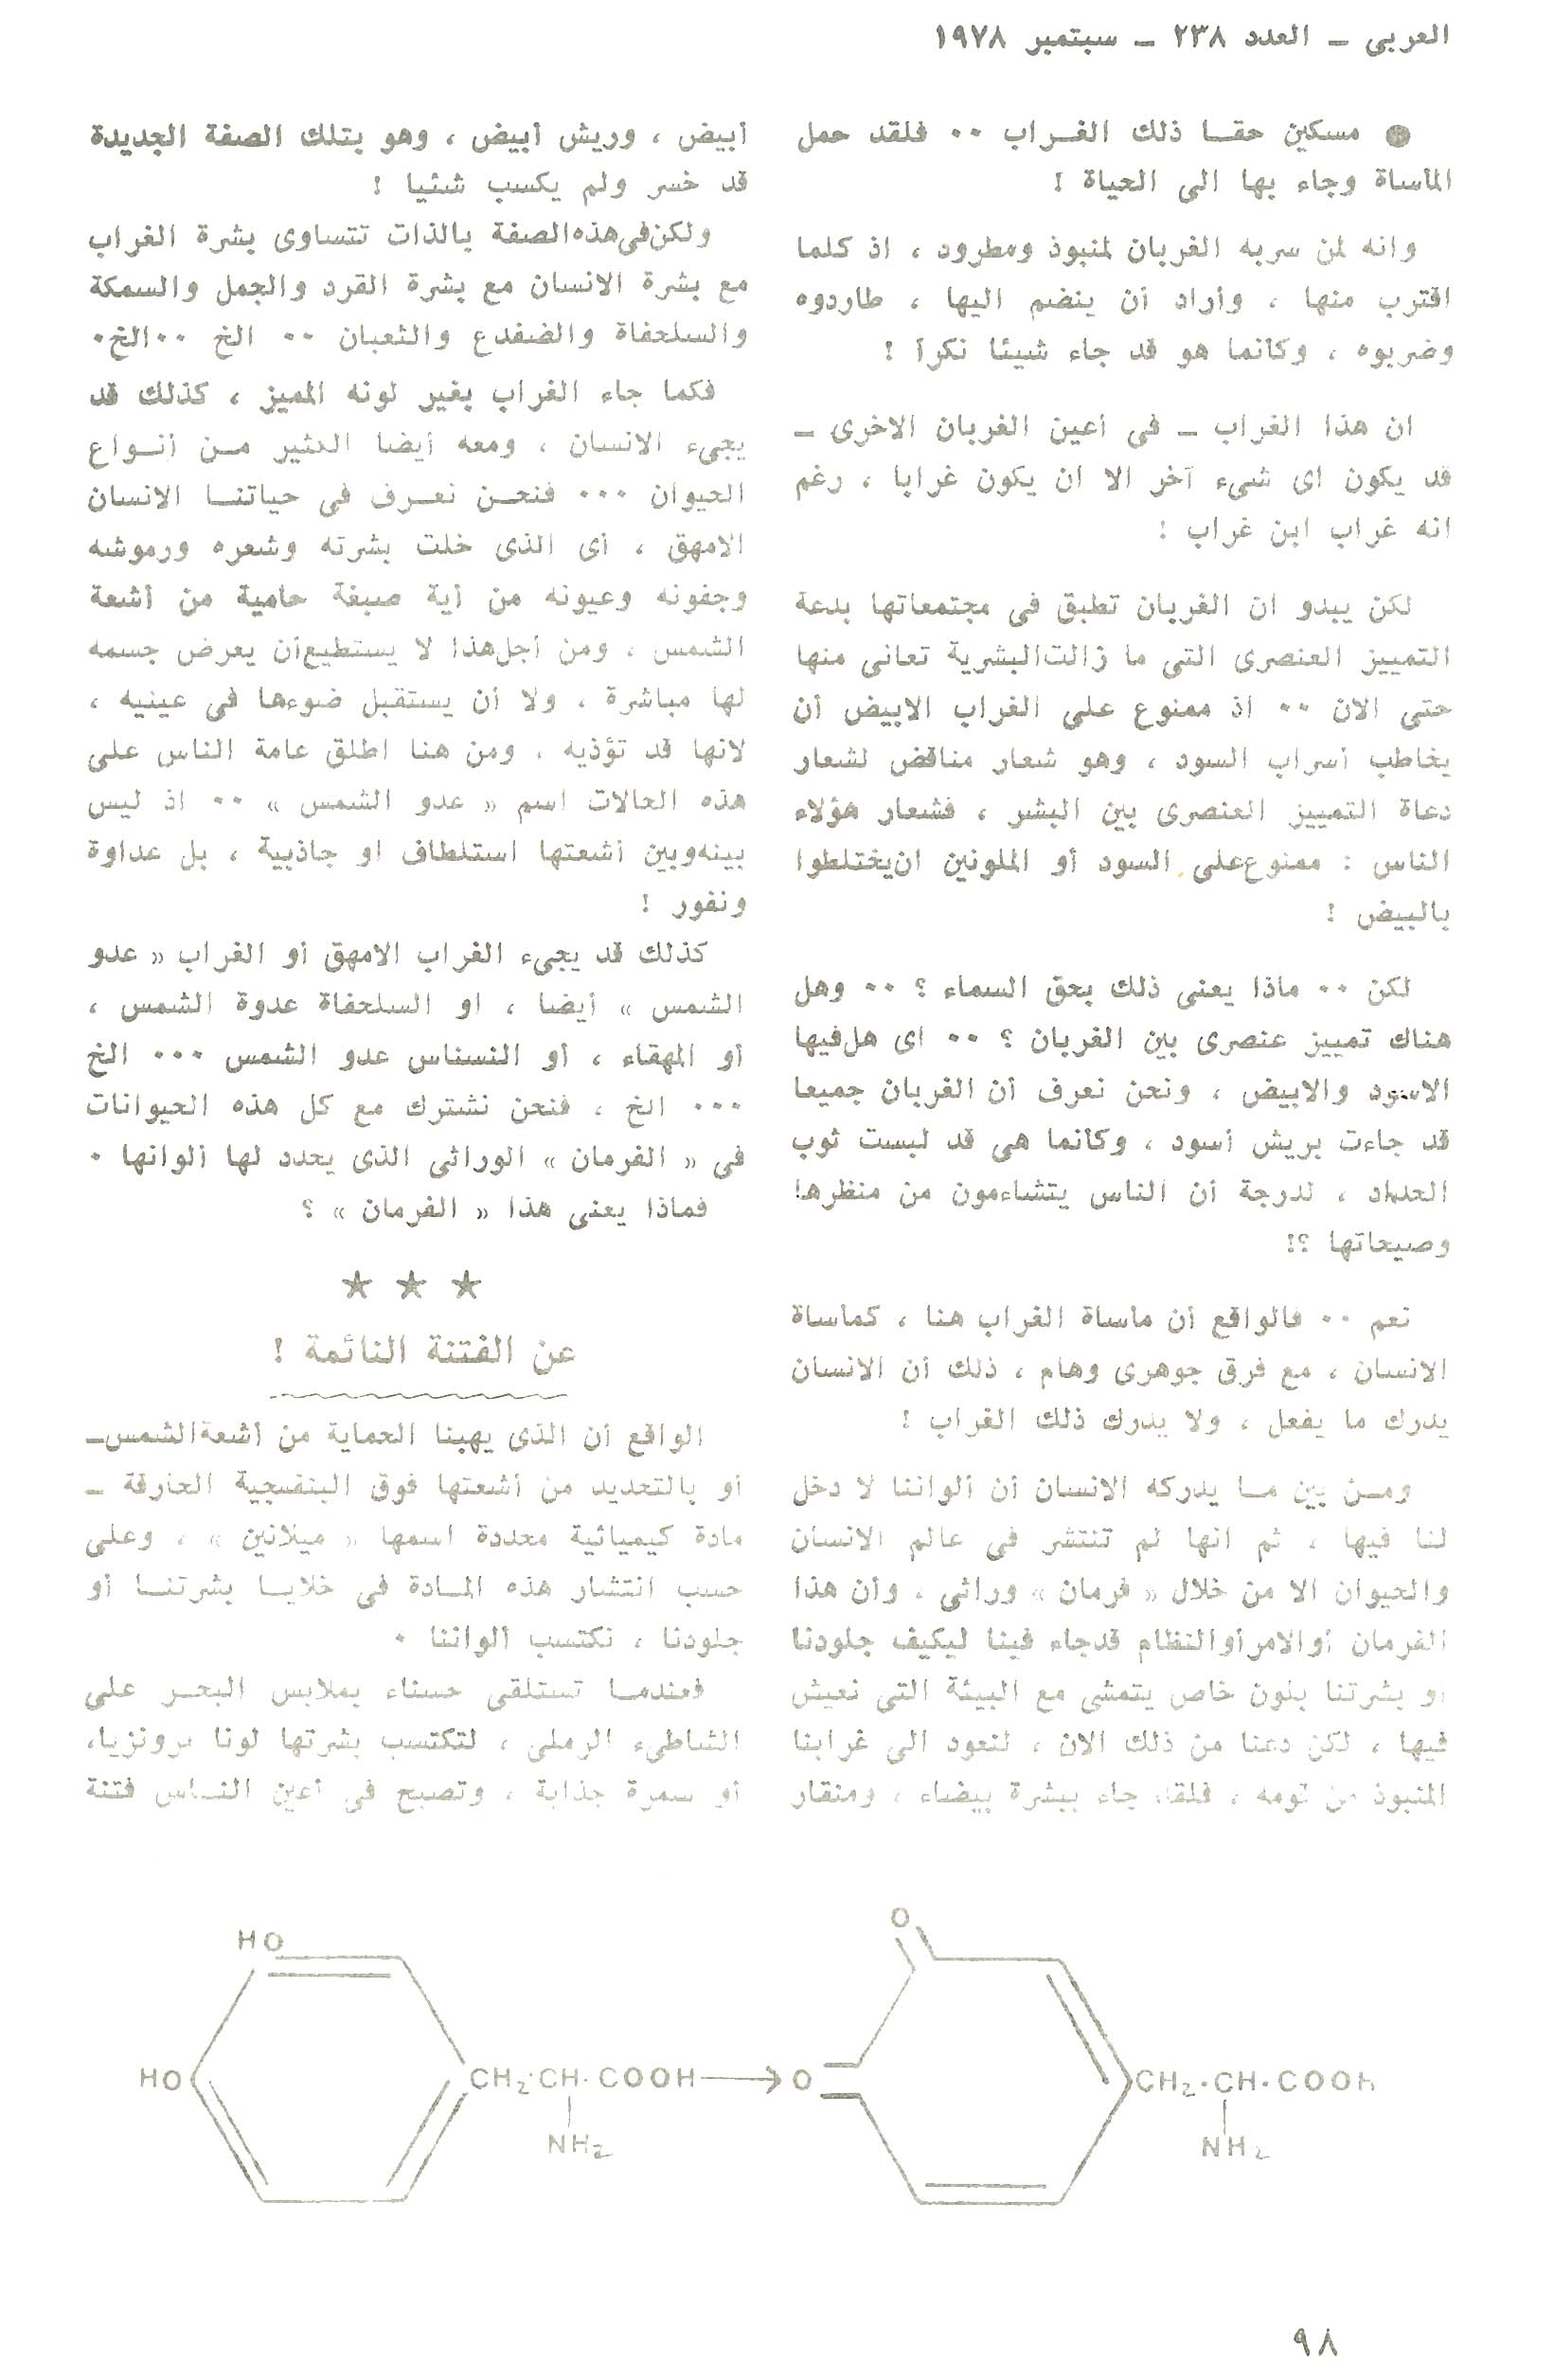 العربى ـ العدد ٢٣٨ ـ سبتمبر ١٩٧٨
● مسكين حقـا ذلك الغـراب ٠٠ فلقد حمل
المأساة وجاء بها الى الحياة !
وانه لمن سربه الغربان لمنبوذ ومطرود ، اذ كلما
اقترب منها ، وأراد أن ينضم اليها ، طاردوه
وضربوه ، وكأنما هو قد جاء شيئا نكرا !
ان هذا الغراب ـ فى أعين الغربان الاخرى ـ
قد يكون اى شىء آخر الا ان يكون غرابا ، رغم
انه غراب ابن غراب !
لكن يبدو ان الغربان تطبق فى مجتمعاتها بدعة
التمييز العنصرى التى ما زالت البشرية تعانى منها
حتى الان ٠٠ اذ ممنوع على الغراب الابيض أن
يخاطب أسراب السود ، وهو شعار مناقض لشعار
دعاة التمييز العنصرى بين البشر ، فشعار هؤلاء
الناس : ممنوع على السود أو الملونين ان يختلطوا
بالبيض !
لكن ٠٠ ماذا يعنى ذلك بحق السماء ؟ ٠٠ وهل
هناك تمييز عنصرى بين الغربان ؟ ٠٠ اى هل فيها
الاسود والابيض ، ونحن نعرف أن الغربان جميعا
قد جاءت بريش أسود ، وكأنما هى قد لبست ثوب
الحداد ، لدرجة أن الناس يتشاءمون من منظرها
وصيحاتها ؟!
نعم ٠٠ فالواقع أن مأساة الغراب هنا ، كمأساة
الانسان ، مع فرق جوهرى وهام ، ذلك أن الانسان
يدرك ما يفعل ، ولا يدرك ذلك الغراب !
ومـن بين مـا يدركه الانسان أن ألواننا لا دخل
لنا فيها ، ثم انها لم تنتشر فى عالم الانسان
والحيوان الا من خلال « فرمان » وراثى ، وأن هذا
الفرمان أو الامر أو النظام قد جاء فينا ليكيف جلودنا
أو بشرتنا بلون خاص يتمشى مع البيئة التى نعيش
فيها ، لكن دعنا من ذلك الان ، لنعود الى غرابنا
المنبوذ من قومه ، فلقد جاء ببشرة بيضاء ، ومنقار
أبيض ، وريش أبيض ، وهو بتلك الصفة الجديدة
قد خسر ولم يكسب شئيا !
ولكن فى هذه الصفة بالذات تتساوى بشرة الغراب
مع بشرة الانسان مع بشرة القرد والجمل والسمكة
والسلحفاة والضفدع والثعبان ٠٠ الخ ٠٠ الخ٠
فكما جاء الغراب بغير لونه المميز ، كذلك قد
يجىء الانسان ، ومعه أيضا الكثير مـن أنـواع
الحيوان ٠٠٠ فنحـن نعـرف فى حياتنـا الانسان
الامهق ، أى الذى خلت بشرته وشعره ورموشه
وجفونه وعيونه من أية صبغة حامية من أشعة
الشمس ، ومن أجل هذا لا يستطيع أن يعرض جسمه
لها مباشرة ، ولا أن يستقبل ضوءها فى عينيه ،
لانها قد تؤذيه ، ومن هنا اطلق عامة الناس على
هذه الحالات اسم « عدو الشمس » ٠٠ اذ ليس
بينه وبين أشعتها استلطاف او جاذبية ، بل عداوة
ونفور !
كذلك قد يجىء الغراب الامهق أو الغراب « عدو
الشمس » أيضا ، او السلحفاة عدوة الشمس ،
أو المهقاء ، أو النسناس عدو الشمس ٠٠٠ الخ
٠٠٠ الخ ، فنحن نشترك مع كل هذه الحيوانات
فى « الفرمان » الوراثى الذى يحدد لها ألوانها ٠
فماذا يعنى هذا « الفرمان » ؟
★ ★ ★
عن الفتنة النائمة !
الواقع أن الذى يهبنا الحماية من أشعة الشمس ـ
أو بالتحديد من أشعتها فوق البنفسجية الحارقة ـ
مادة كيميائية محددة اسمها « ميلانين » ، وعلى
حسب انتشار هذه المـادة فى خلايـا بشرتنـا أو
جلودنا ، نكتسب ألواننا ٠
فعندمـا تستلقى حسناء بملابس البحـر على
الشاطىء الرملى ، لتكتسب بشرتها لونا برونزيا،
أو سمرة جذابة ، وتصبح فى أعين النـاس فتنة
HO
HO
CH₂·CH·COOH
NH₂
O
O
CH₂·CH·COOH
NH₂
٩٨